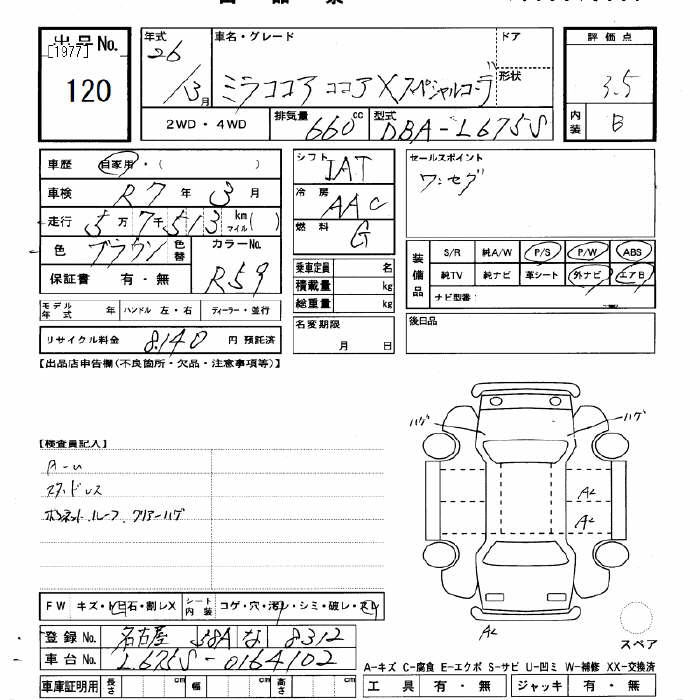 出品No.
[1977]
120
年式
26
/3月
車名・グレード
ミラココア ココアXスペシャルコーデ
ドア
形状
2WD・4WD
排気量 660 cc
型式 DBA-L675S
評価点
3.5
内装
B
車歴 自家用・( )
車検 R7年3月
走行 5万7千513km マイル( )
色 ブラウン 色替
カラーNo.
R59
保証書 有・無
モデル年式 年 ハンドル 左・右 ディーラー・並行
リサイクル料金 8.140 円 預託済
シフト
IAT
冷房
AAC
燃料
G
乗車定員 名
積載量 kg
総重量 kg
名変期限
月 日
セールスポイント
ワンセグ
装備品
S/R 純A/W P/S P/W ABS
純TV 純ナビ 革シート 外ナビ エアB
ナビ型番
後日品
【出品店申告欄(不良箇所・欠品・注意事項等)】
【検査員記入】
スタッドレス
ボンネット.ルーフ.クリアーハゲ
FW キズ・飛石・割レX
シート内装 コゲ・穴・汚レ・シミ・破レ・スレ
登録No. 名古屋 58A な 8312
車台No. L675S-0164102
車庫証明用 長さ cm 幅 cm 高さ cm
ハゲ
ハゲ
A2
A2
A2
スペア
A-キズ C-腐食 E-エクボ S-サビ U-凹ミ W-補修 XX-交換済
工具 有・無 ジャッキ 有・無